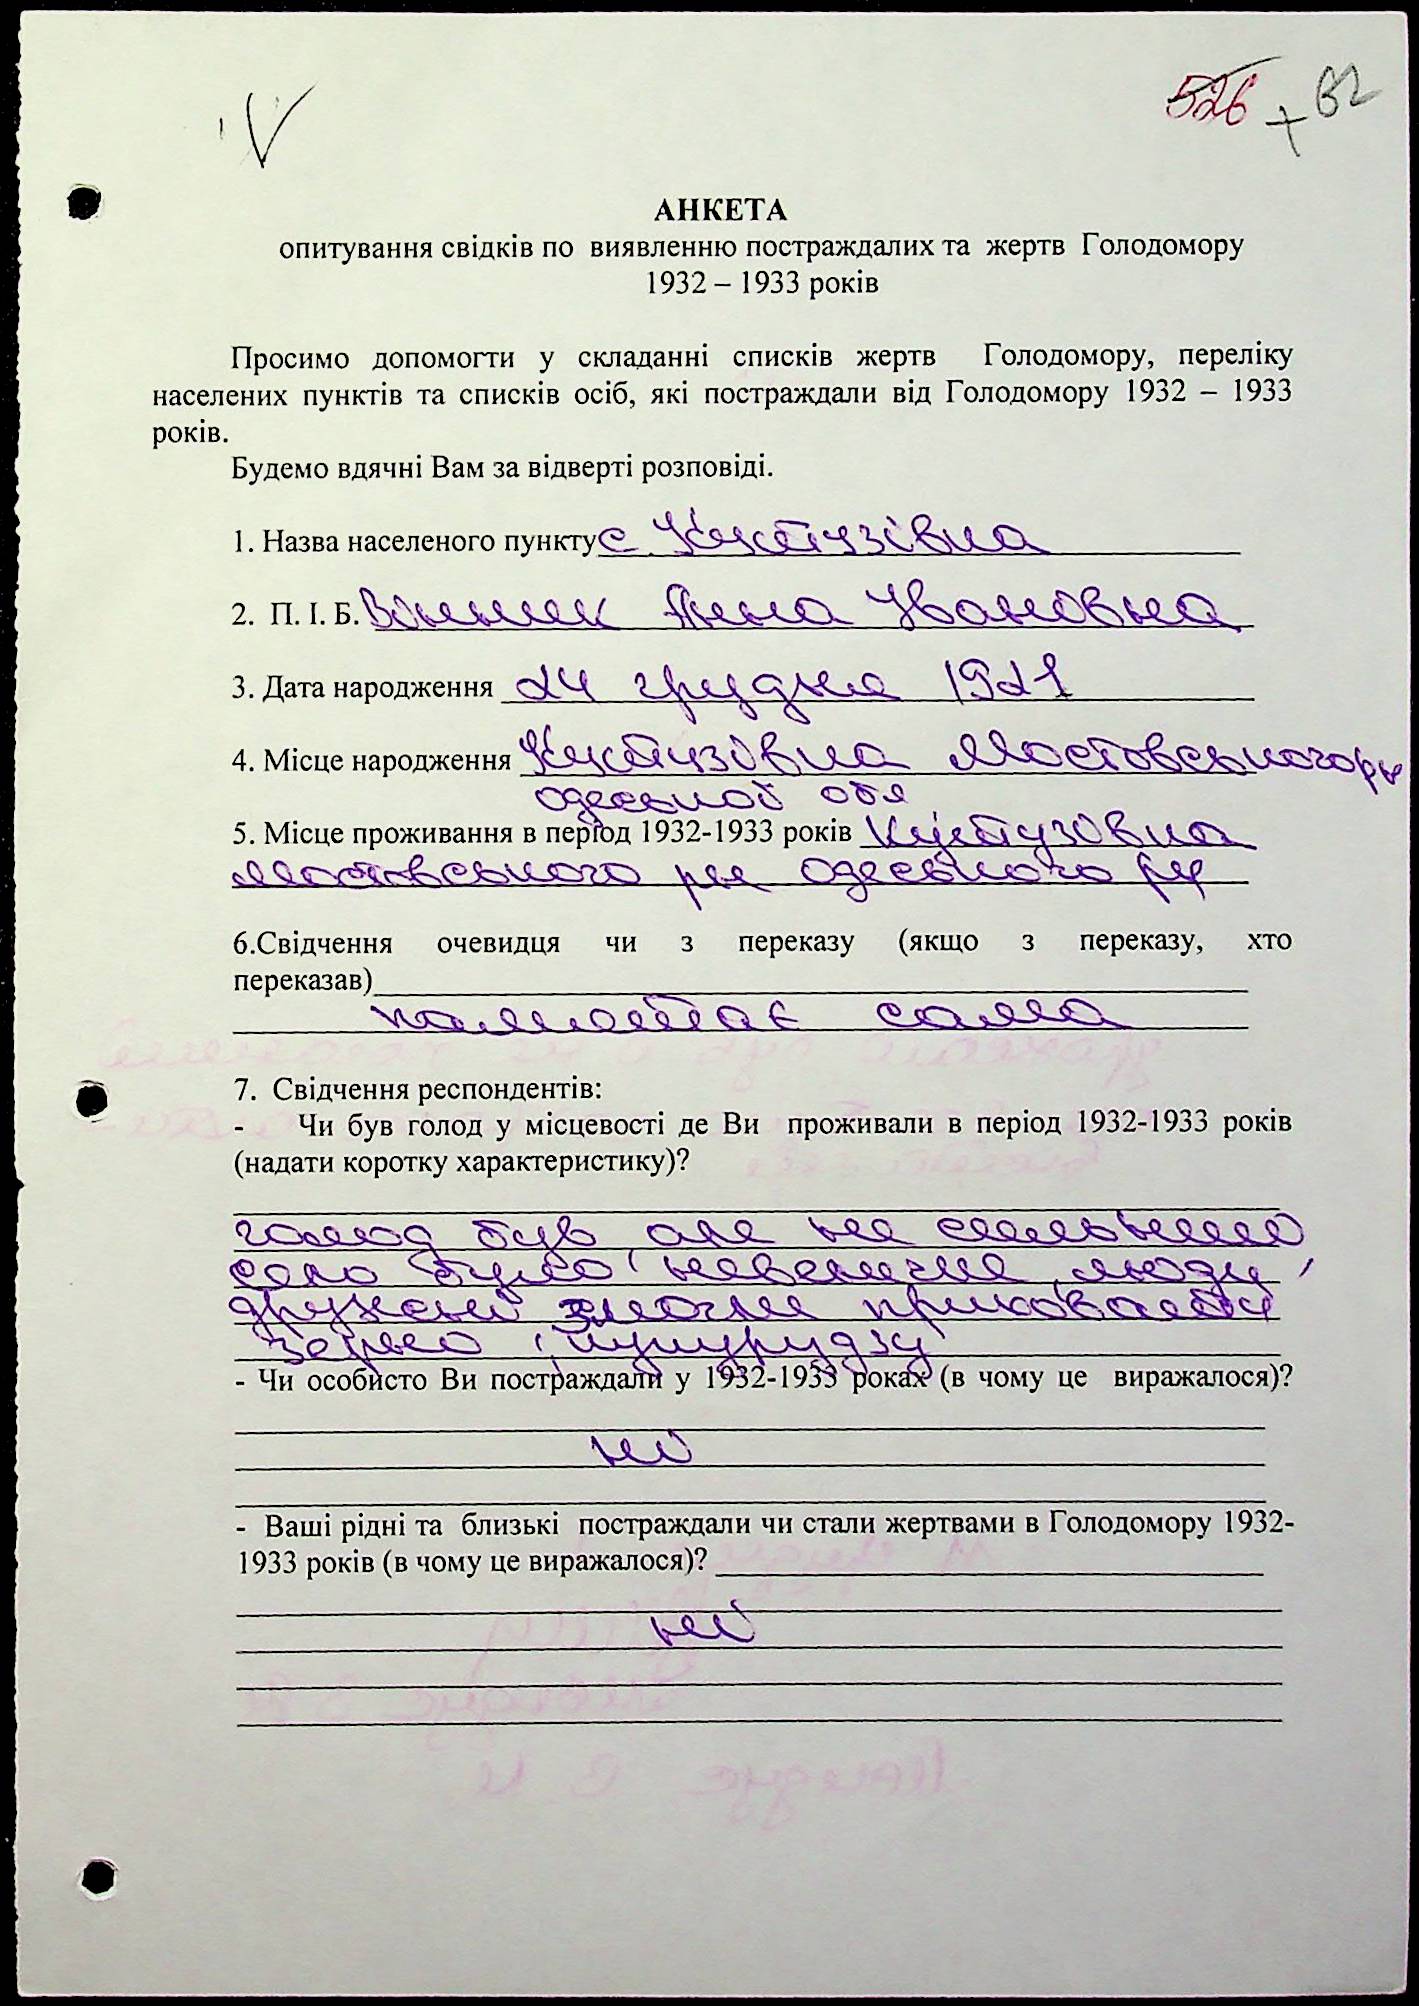 V
526 + 62
АНКЕТА
опитування свідків по виявленню постраждалих та жертв Голодомору
1932 – 1933 років
Просимо допомогти у складанні списків жертв Голодомору, переліку
населених пунктів та списків осіб, які постраждали від Голодомору 1932 – 1933
років.
Будемо вдячні Вам за відверті розповіді.
1. Назва населеного пункту с Кутузівна
2. П. І. Б. Анна Івановна
3. Дата народження 24 грудня 1921
4. Місце народження Кутузівна Мостовського рн
одеської обл
5. Місце проживання в період 1932-1933 років Кутузовна
Мостовського рн одеського
6.Свідчення очевидця чи з переказу (якщо з переказу, хто
переказав)
памнятає сама
7. Свідчення респондентів:
- Чи був голод у місцевості де Ви проживали в період 1932-1933 років
(надати коротку характеристику)?
голод був але не сильний
село було невеличке, люди,
дружені змогли приховати
зерно і кукурудзу
- Чи особисто Ви постраждали у 1932-1933 роках (в чому це виражалося)?
ні
- Ваші рідні та близькі постраждали чи стали жертвами в Голодомору 1932-
1933 років (в чому це виражалося)?
ні